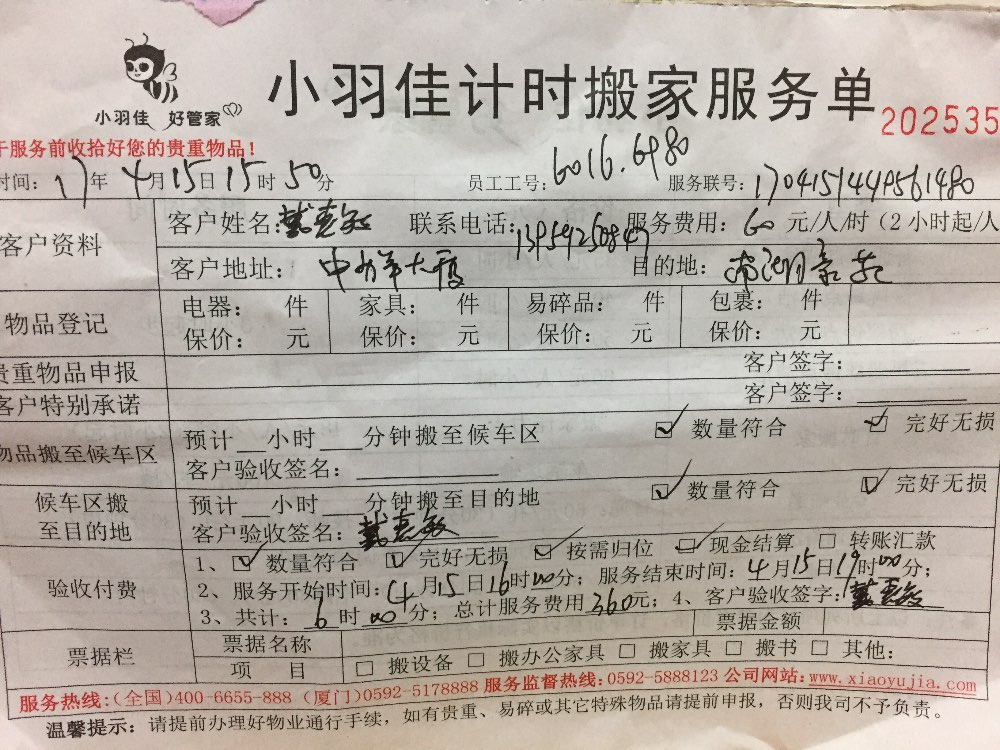 小羽佳计时搬家服务单
小羽佳 好管家
202535
于服务前收拾好您的贵重物品！
时间：17年4月15日15时50分 员工工号：6016.6980 服务联号：1704151449561480
客户资料
客户姓名：戴惠敏 联系电话：13959250847 服务费用：60元/人/时（2小时起/人
客户地址：中大厦 目的地：
物品登记
电器： 件 家具： 件 易碎品： 件 包裹： 件
保价： 元 保价： 元 保价： 元 保价： 元
贵重物品申报 客户签字：
客户特别承诺 客户签字：
物品搬至候车区
预计__小时___分钟搬至候车区 ☑ 数量符合 ☑ 完好无损
客户验收签名：
候车区搬至目的地
预计__小时___分钟搬至目的地 ☑ 数量符合 ☑ 完好无损
客户验收签名：戴惠敏
验收付费
1、☑ 数量符合 ☑ 完好无损 ☑ 按需归位 ☑ 现金结算 □ 转账汇款
2、服务开始时间：4月15日16时00分；服务结束时间：4月15日19时00分；
3、共计：6时00分；总计服务费用360元；4、客户验收签字：戴惠敏
票据栏
票据名称 票据金额
项 目 □ 搬设备 □ 搬办公家具 □ 搬家具 □ 搬书 □ 其他：
服务热线：(全国)400-6655-888 (厦门)0592-5178888 服务监督热线：0592-5888123 公司网站：www.xiaoyujia.com
温馨提示：请提前办理好物业通行手续，如有贵重、易碎或其它特殊物品请提前申报，否则我司不予负责。